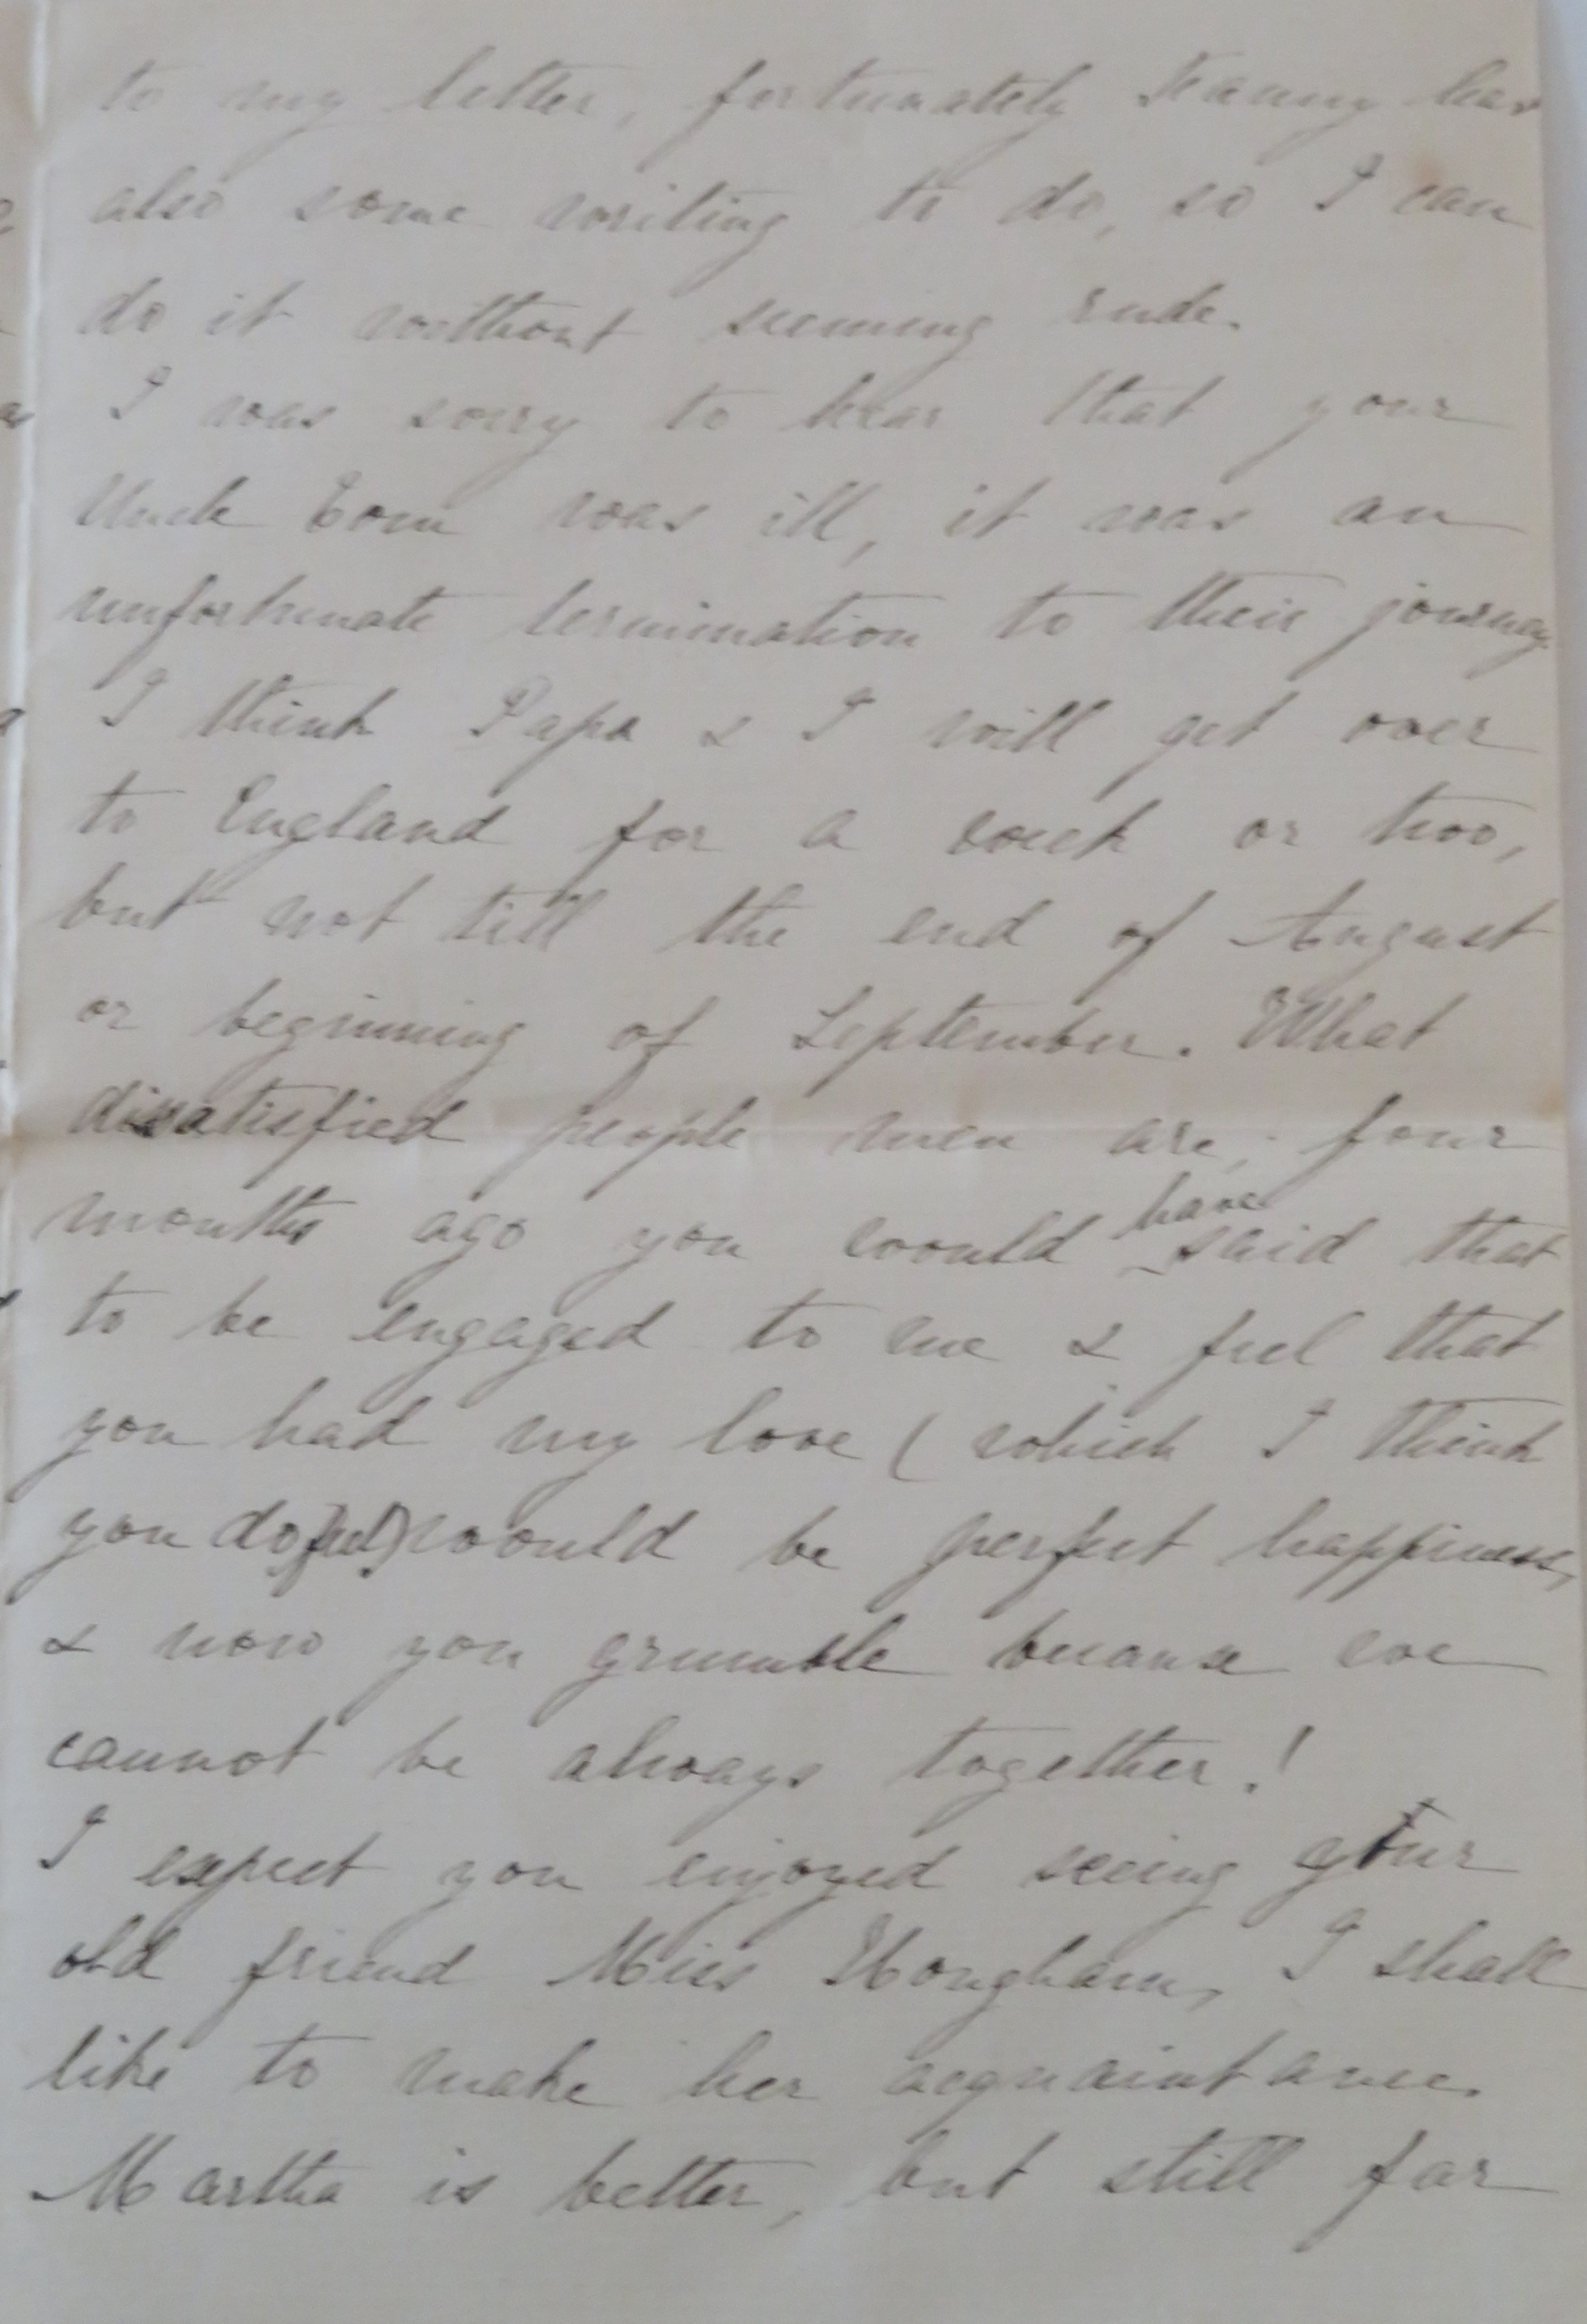 to my letter, fortunately Fanny has
also some writing to do, so I can
do it without seeming rude.
I was sorry to hear that your
Uncle Tom was ill, it was an
unfortunate termination to their journey.
I think Papa & I will get over
to England for a week or two,
but not till the end of August
or beginning of September. What
dissatisfied people men are, four
months ago you would have said that
to be engaged to me & feel that
you had my love (which I think
you do feel) would be perfect happiness,
& now you grumble because we
cannot be always together!
I expect you enjoyed seeing your
old friend Miss I shall
like to make her acquaintance.
Martha is better, but still far